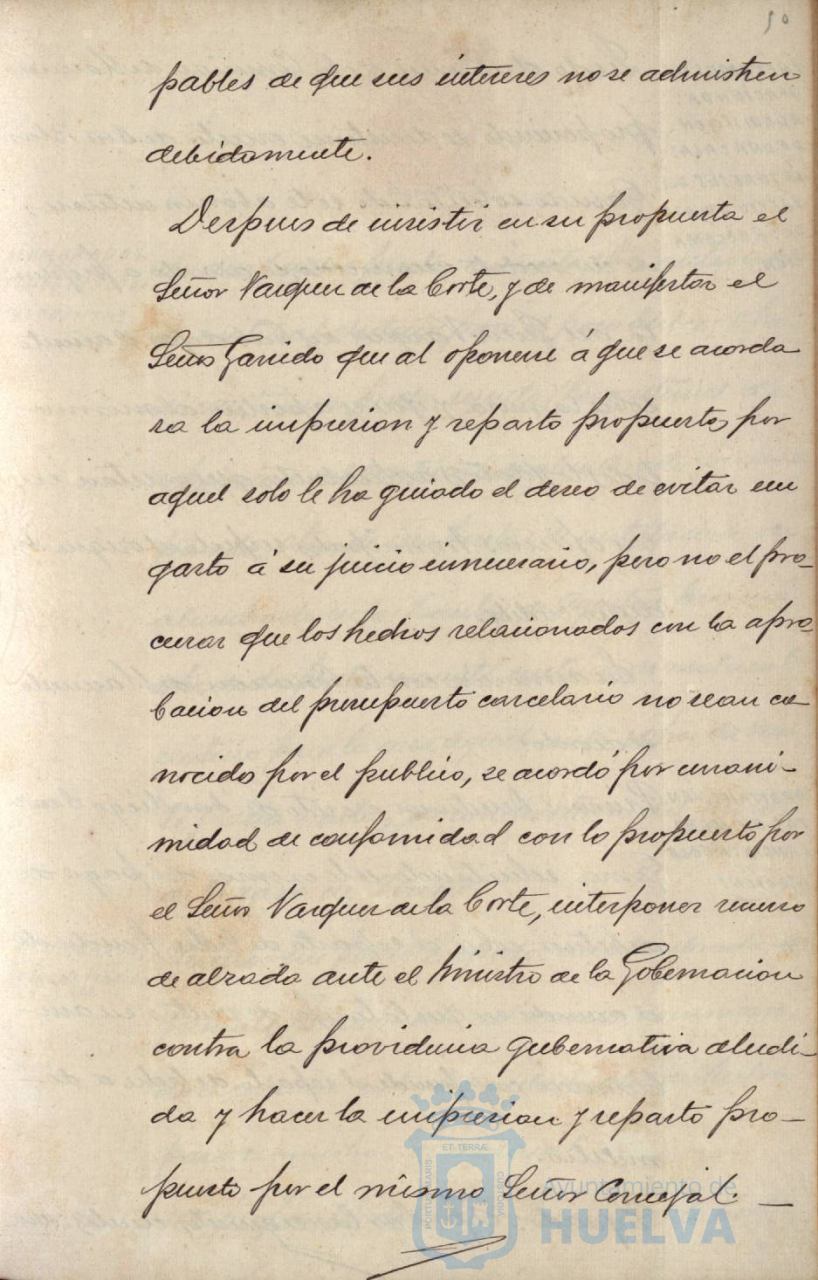 50
pables de que sus intereses no se administren
debidamente.
Despues de insistir en su propuesta el
Señor Vazquez de la Corte, y de manifestar el
Señor Garrido que al oponerse á que se acorda
ra la impresion y reparto propuesto, por
aquel solo le ha guiado el deseo de evitar un
gasto á su juicio innecesario, pero no el pro-
curar que los hechos relacionados con la apro-
bacion del presupuesto carcelario no sean co
nocido por el publico, se acordó por unani-
midad de conformidad con lo propuesto por
el Señor Vazquez de la Corte, interponer recurso
de alzada ante el Ministro de la Gobernacion
contra la providencia gubernativa aludi-
da y hacer la impresion y reparto pro-
puesto por el mismo Señor Concejal. —
ET TERRÆ
PORTUS MARIS
CUSTODIA
Ayuntamiento de
HUELVA